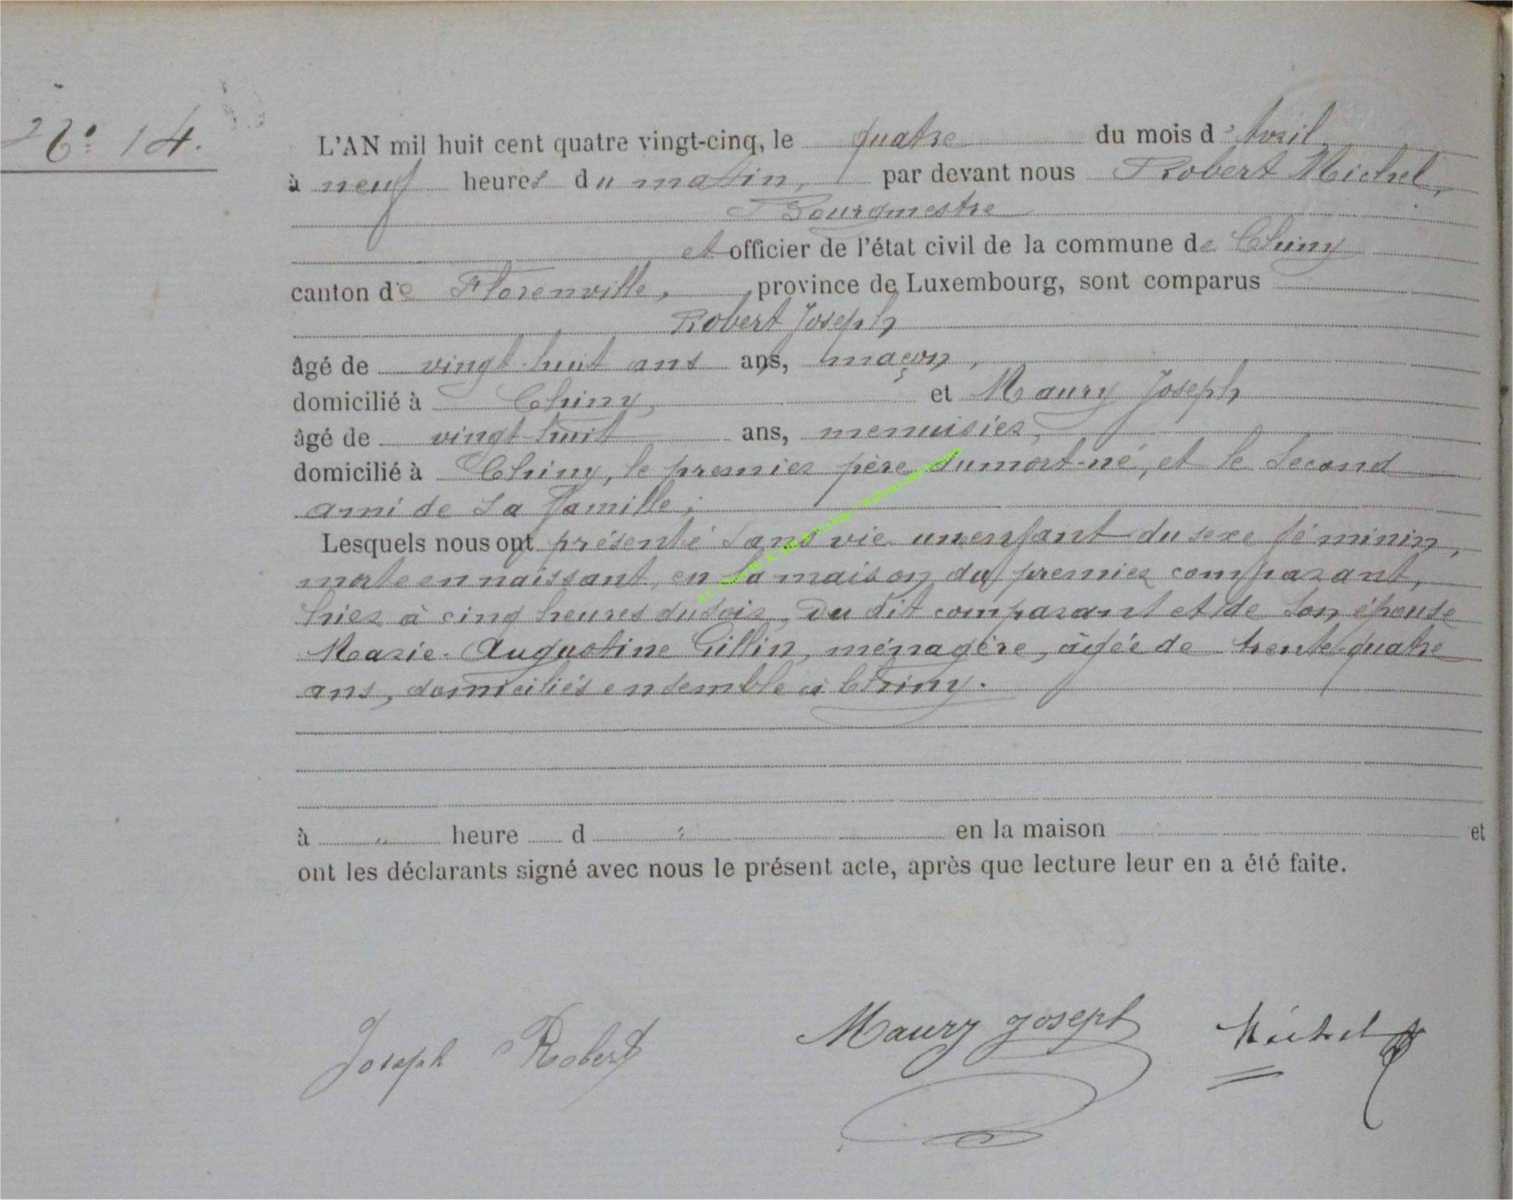 N°: 14.
L'AN mil huit cent quatre vingt-cinq, le quatre du mois d'Avril
à neuf heures du matin, par devant nous Robert Michel,
Bourgmestre
et officier de l'état civil de la commune de Chiny
canton de Florenville, province de Luxembourg, sont comparus
Robert Joseph
âgé de vingt-huit ans ans, maçon,
domicilié à Chiny, et Maury Joseph
âgé de vingt-huit ans, menuisier,
domicilié à Chiny, le premier père du mort-né, et le second
ami de la famille;
Lesquels nous ont présenté sans vie un enfant du sexe féminin,
morte en naissant, en la maison du premier comparant,
hier à cinq heures du soir, du dit comparant et de son épouse
Marie-Augustine Gillin, ménagère, âgée de trente-quatre
ans, domiciliés ensemble à Chiny.
à " heure d " en la maison et
ont les déclarants signé avec nous le présent acte, après que lecture leur en a été faite.
Joseph Robert Maury Joseph Michel